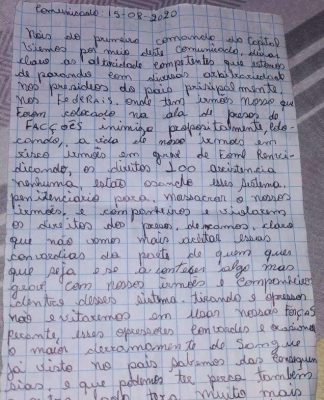 Comunicado 15-08-2020
Nois do primeiro comando da Capital
Viemos por meio deste Comunicado, deixar
claro as altoridade competentes que estamos
de parando com diversas arbitrariedade
nos presidios do país prinsipalmente
nos FedeRais. onde tem irmãos nosso que
foram colocado na ala de presos de
FACÇÕES inimiga propositalmente, colo-
cando, a vida de nosso irmãos em
risco irmãos em greve de fome Reinvi-
dicando, os direitos 100 assistencia
nenhuma, estão usando esse sistema
penitenciario para massacrar o nossos
irmãos, e companheiros e violarem
os direitos dos presos, deixamos, claro
que não vamos mais aceitar essas
covardias da parte de quem quer
que seja e se a conteser algo mas
grave com nossos irmãos e companheiros
dentro desses sistema, tirando e opressor
não evitaremos em usar nossas forças
perante, esses opressores covardes e
o maior derramamento de Sangue
já visto no país sabemos das consequen
sias, e que podemos ter perca também
lado tera muito mais